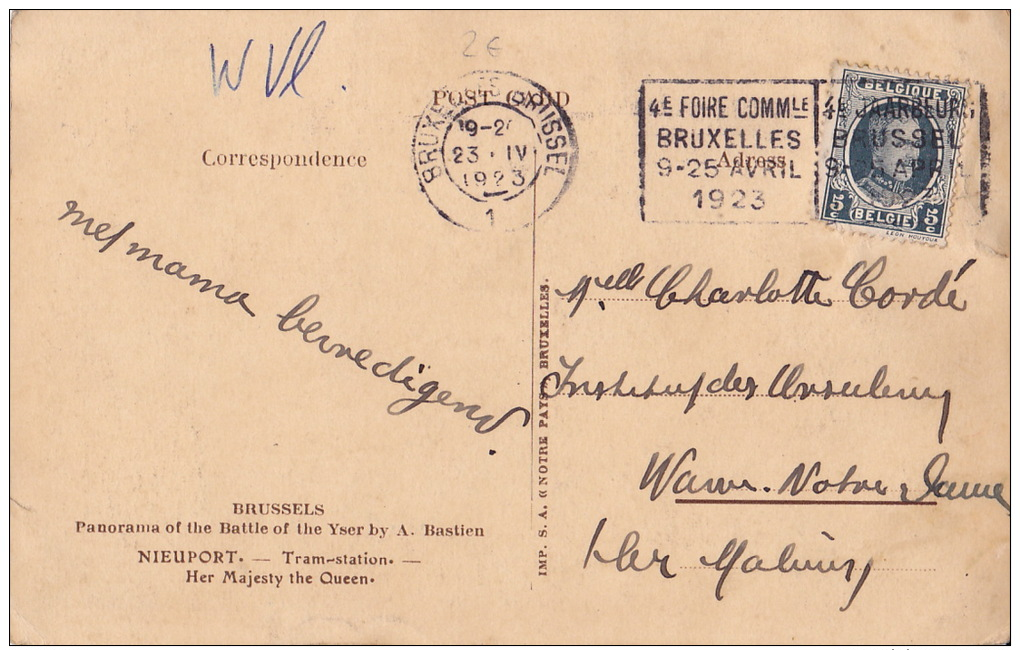 W Vl.
2€
POST CARD
Correspondence
Adress
BRUXELLES BRUSSEL
19-2
23 · IV
1923
1
4E FOIRE COMMLE
BRUXELLES
9-25 AVRIL
1923
4E JAARBEURS
BRUSSEL
9-25 APRIL
BELGIQUE
5c (BELGIË) 5c
LEON HOUYOUX
met mama bevredigend.
Melle Charlotte Cordé
Institut des Ursulines
Wavre. Notre Dame
lez Malines
BRUSSELS
Panorama of the Battle of the Yser by A. Bastien
NIEUPORT. — Tram-station. —
Her Majesty the Queen.
IMP. S. A. « NOTRE PAYS », BRUXELLES.